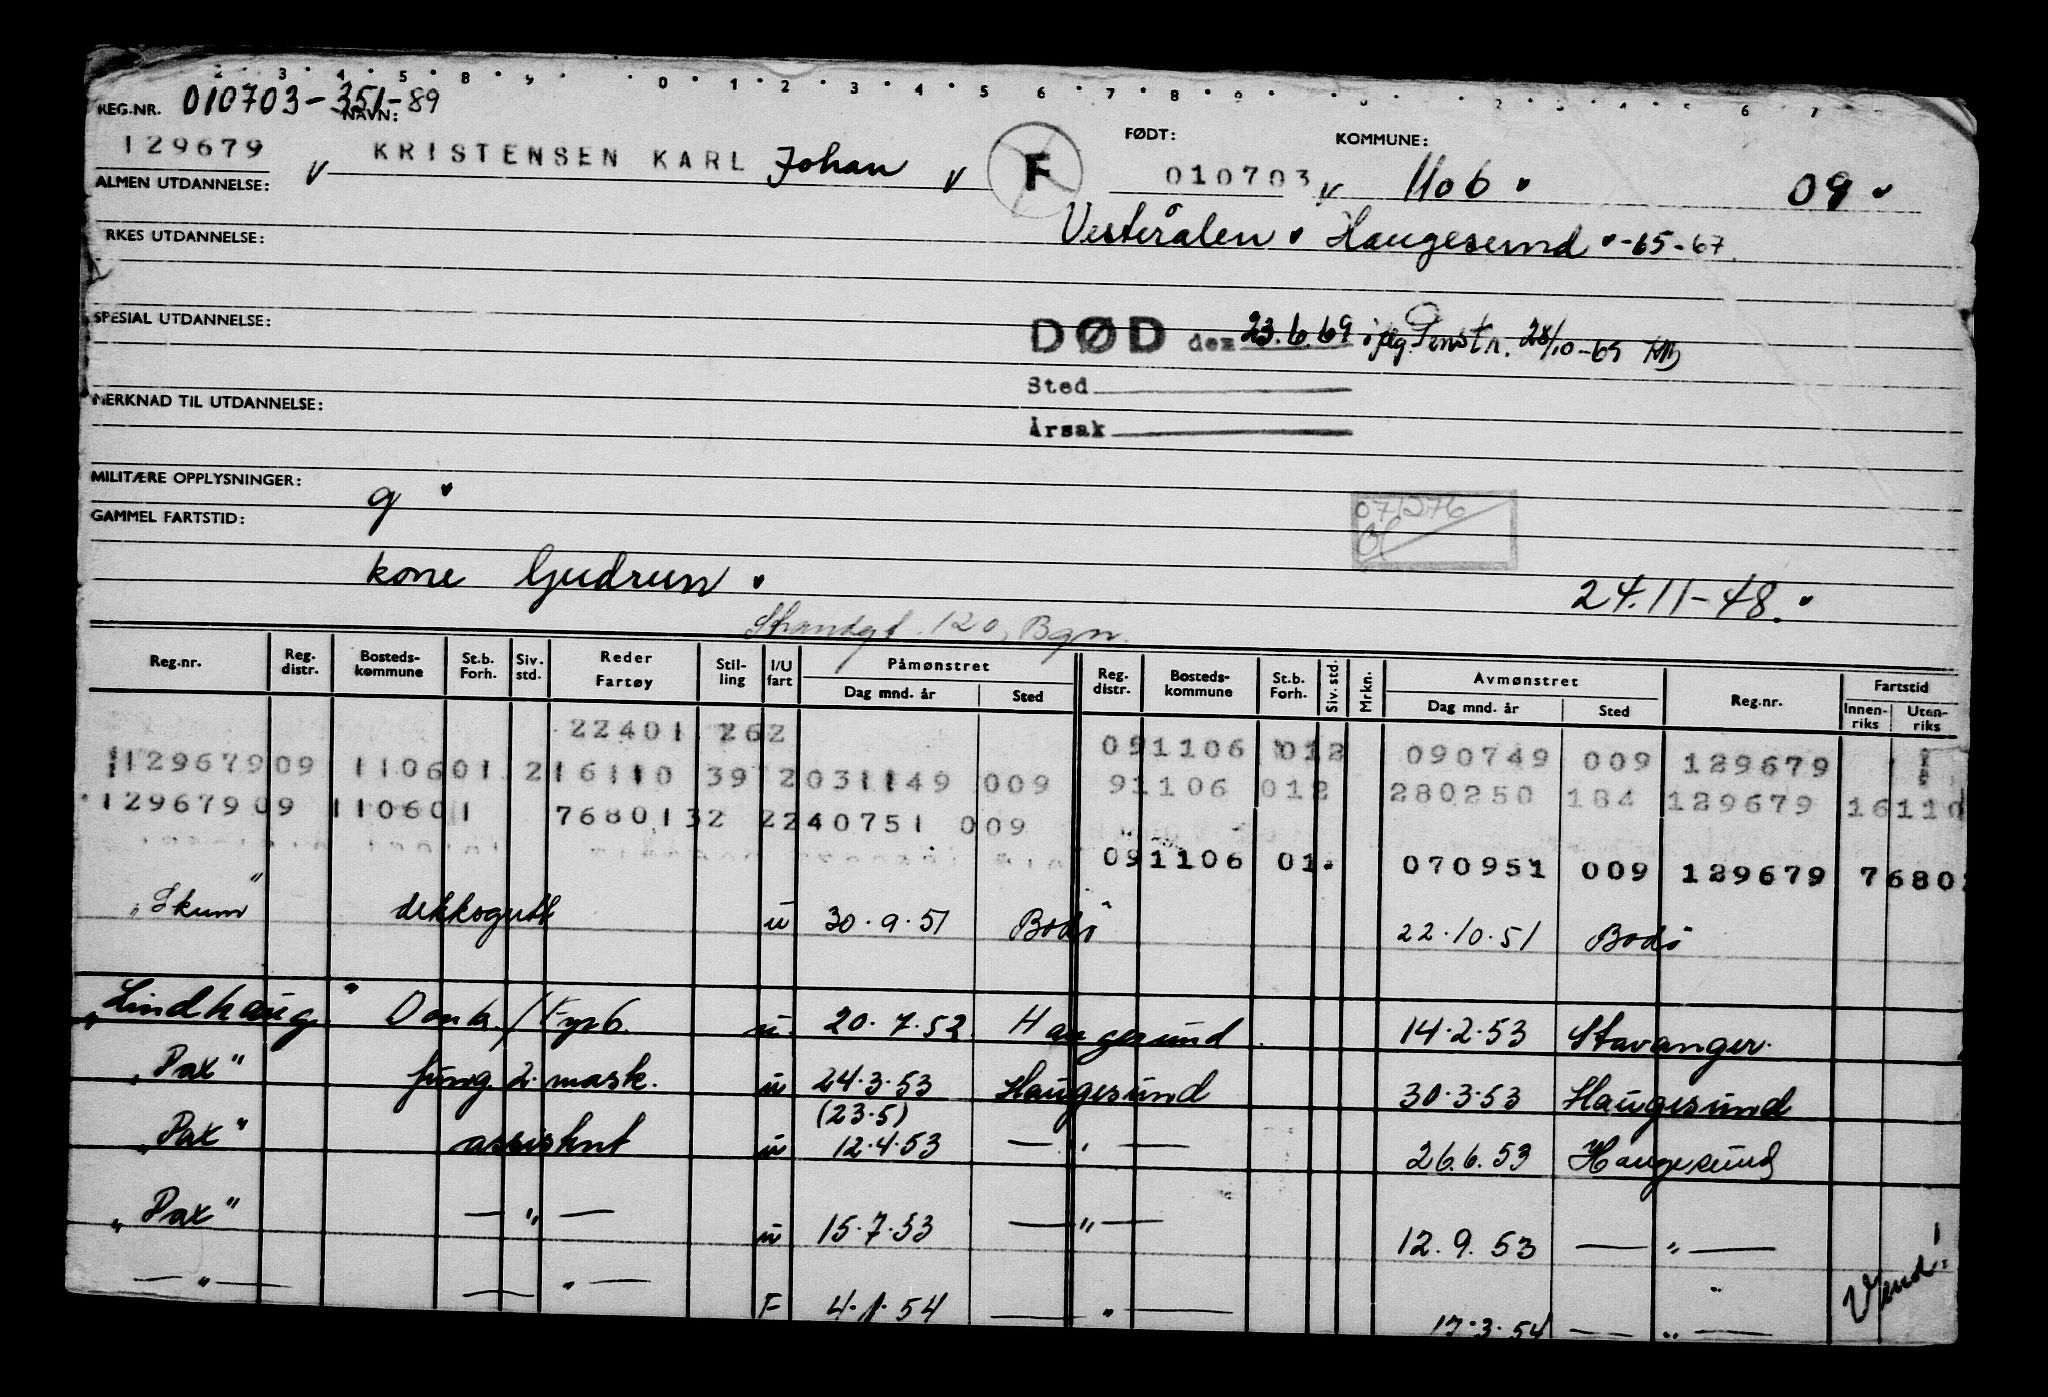 2 · 3 · 4 · 5 · 8 · 9 · 0 · 1 · 2 · 3 · 4 · 5 6 · 7 · 8 · 9 · 6 7
REG.NR. 010703-351-89
NAVN: FØDT: KOMMUNE:
129679 v KRISTENSEN KARL Johan v F 010703 v 1106 09
ALMEN UTDANNELSE:
Vesterålen Haugesund -65-67
RKES UTDANNELSE:
SPESIAL UTDANNELSE:
DØD den 23.6.69 iflg. Penstr. 28/10-69
Sted
MERKNAD TIL UTDANNELSE:
Årsak
MILITÆRE OPPLYSNINGER: 9
071276
GAMMEL FARTSTID:
kone Gudrun 24.11-48.
Strandgt. 120, Bgn.
Reg.nr. Reg. distr. Bosteds-kommune St.b. Forh. Siv. std. Reder Fartøy Stil-ling I/U fart Påmønstret Dag mnd. år Sted Reg. distr. Bosteds-kommune St.b. Forh. Siv. std. Mrkn. Avmønstret Dag mnd. år Sted Reg.nr. Fartstid Innen-riks Uten-riks
22401 262 091106 012 090749 009 129679
129679 09 110601 216110 39 2 031149 009 91106 012 280250 184 129679 16110
129679 09 110601 7680132 2240751 009
091106 01. 070951 009 129679 7680
"Skum" dekksgutt u 30.9.51 Bodø 22.10.51 Bodø
"Lindhaug" Donk./Fyrb. u. 20.7.52 Haugesund. 14.2.53 Stavanger.
"Pax" fung. 2. mask. u 24.3.53 Haugesund 30.3.53 Haugesund
(23.5)
"Pax" assistent u 12.4.53 — " — 26.6.53 Haugesund
"Pax" — " — u 15.7.53 — " — 12.9.53 — " —
— " — — " — F 4.1.54 — " — 17.3.54 — " —
Vend!